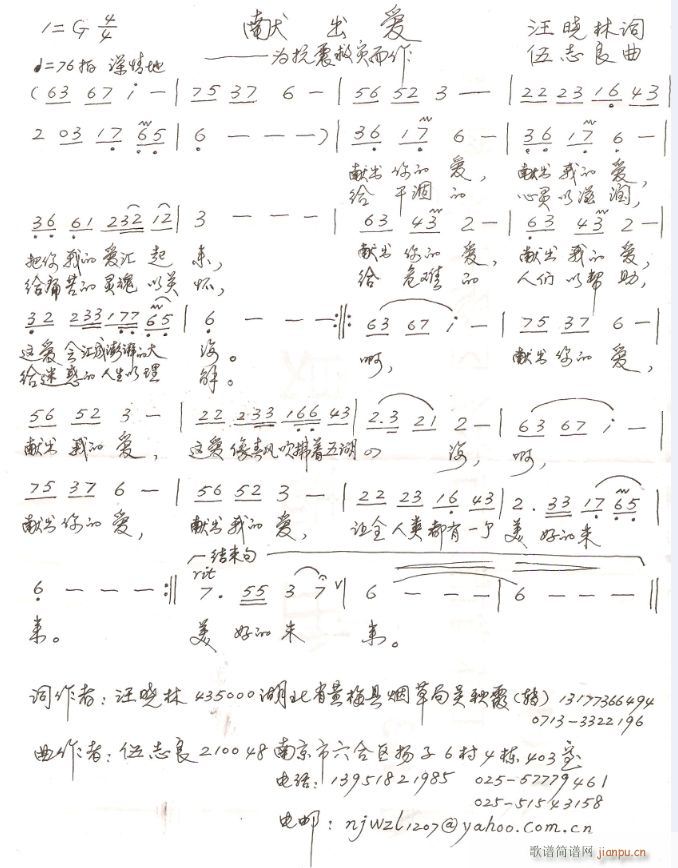 1=G 4/4 献出爱 汪晓林词
♩=76拍 深情地 ——为抗震救灾而作 伍志良曲
(63 67 i - | 75 37 6 - | 56 52 3 - | 22 23 16 43 |
2 03 17 65 | 6 - - - ) | 36 17 6 - | 36 17 6 - |
献出你的爱, 献出我的爱,
给干涸的 心灵以滋润,
36 61 232 12 | 3 - - - | 63 43 2 - | 63 43 2 - |
把你我的爱汇起来, 献出你的爱, 献出我的爱,
给痛苦的灵魂以关怀, 给危难的 人们以帮助,
32 233 177 65 | 6 - - - :‖: 63 67 i - | 75 37 6 - |
这爱会汇成澎湃的大海。 啊, 献出你的爱,
给迷惑的人生以理解。
56 52 3 - | 22 233 166 43 | 2.3 21 2 - | 63 67 i - |
献出我的爱, 这爱像春风吹拂着五湖四海, 啊,
75 37 6 - | 56 52 3 - | 22 23 16 43 | 2. 33 17 65 |
献出你的爱, 献出我的爱, 让全人类都有一个美好的未
结束句
rit
6 - - - :‖ 7. 55 3 7 V | 6 - - - | 6 - - - ‖
来。 美好的未来。
词作者: 汪晓林 435000 湖北省黄梅县烟草局吴秋霞(转) 13177366494
0713-3322196
曲作者: 伍志良 210048 南京市六合区扬子6村4栋403室
电话: 13951821985 025-57779461
025-51543158
电邮: njwzl1207@yahoo.com.cn
歌谱简谱网
jianpu.cn